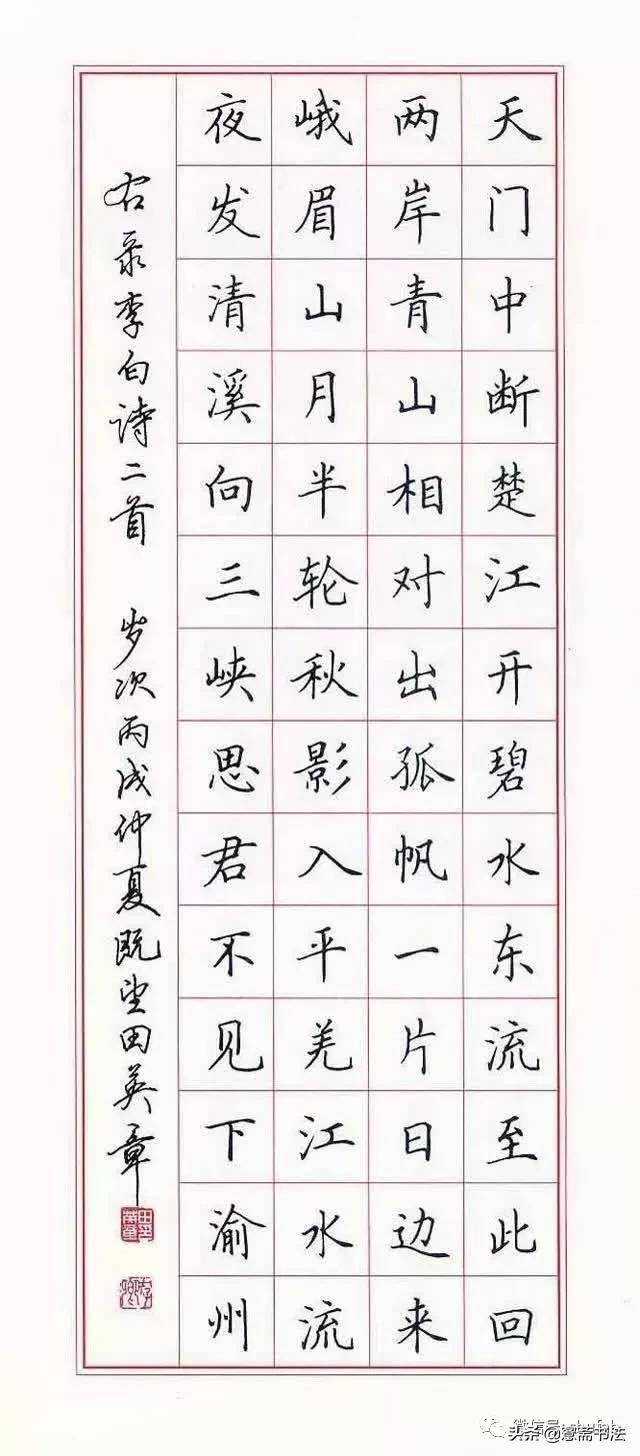 天门中断楚江开碧水东流至此回
两岸青山相对出孤帆一片日边来
峨眉山月半轮秋影入平羌江水流
夜发清溪向三峡思君不见下渝州
右录李白诗二首 岁次丙戌仲夏既望田英章
头条@慧斋书法